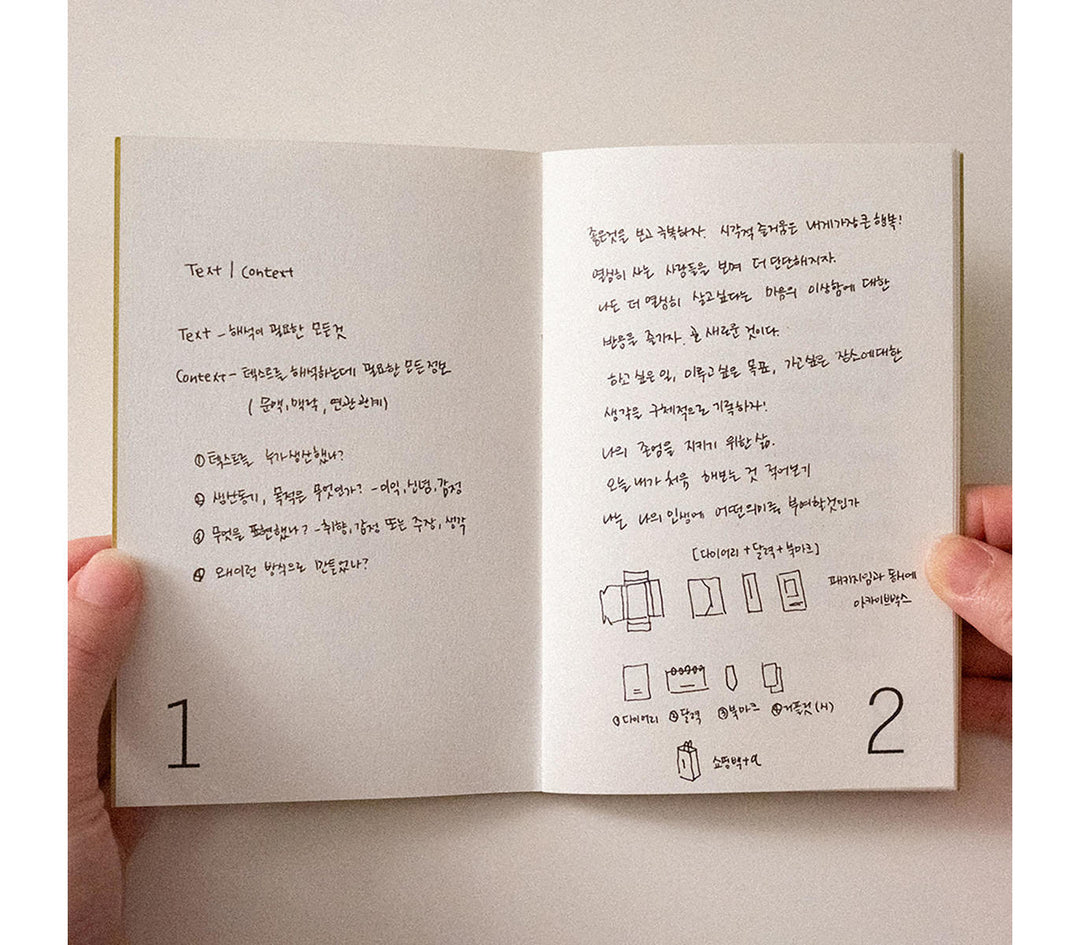 Text | Context
Text - 해석이 필요한 모든것
Context - 텍스트를 해석하는데 필요한 모든정보
( 문맥, 맥락, 연관관계)
① 텍스트는 누가생산했나?
② 생산동기, 목적은 무엇인가? - 이익, 신념, 감정
③ 무엇을 표현했나? - 취향, 감정 또는 주장, 생각
④ 왜이런 방식으로 만들었나?
1
좋은것을 보고 극복하자. 시각적 즐거움은 내게가장큰행복!
열심히 사는 사람들을 보며 더 단단해지자.
나는 더 열심히 살고싶다는 마음의 이상함에 대한
반응을 즐기자. 늘 새로운 것이다.
하고 싶은 일, 이루고싶은 목표, 가고싶은 장소에대한
생각을 구체적으로 기록하자!
나의 존엄을 지키기 위한 삶.
오늘 내가 처음 해보는 것 적어보기
나는 나의 인생에 어떤의미를 부여할것인가
[다이어리 + 달력 + 북마크]
패키지임과 동시에
아카이브박스
① 다이어리 ② 달력 ③ 북마크 ④ 거플렛(시)
쇼핑백+α
2